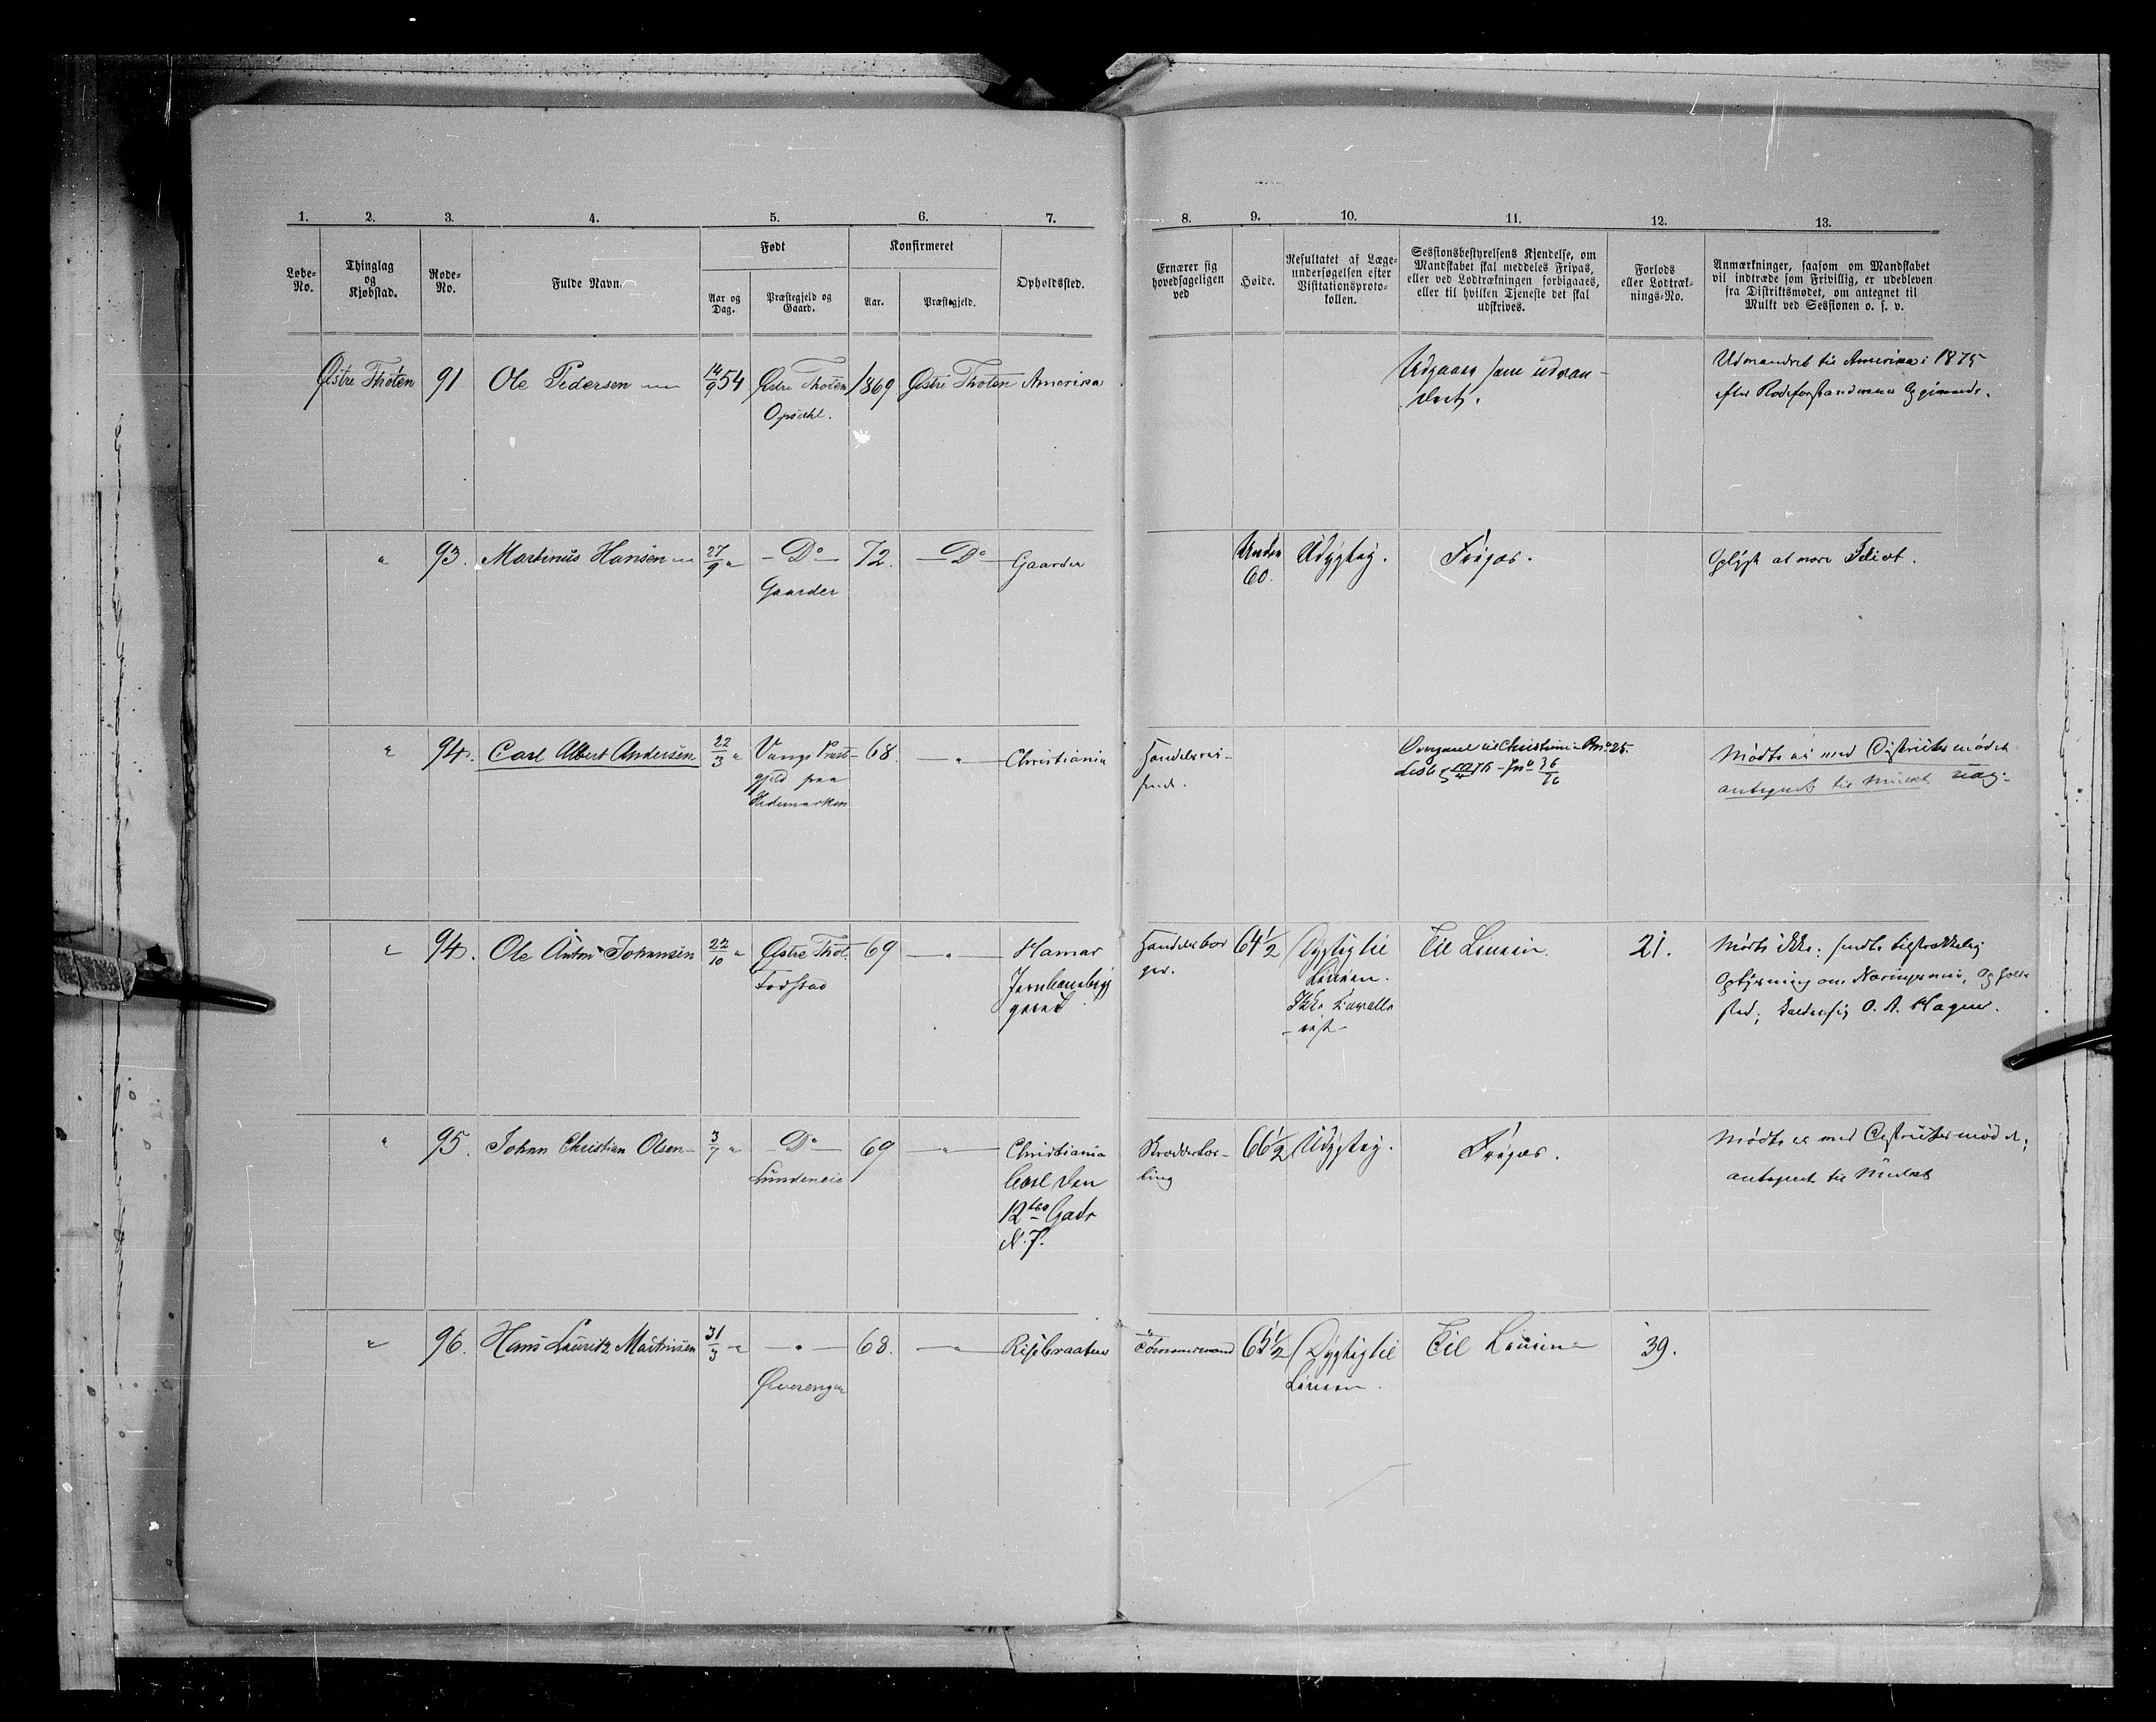 1. 2. 3. 4. 5. 6. 7. 8. 9. 10. 11. 12. 13.
Løbe-No.
Thinglag og Kjøbstad.
Rode-No.
Fulde Navn.
Født
Aar og Dag.
Præstegjeld og Gaard.
Konfirmeret
Aar.
Præstegjeld.
Opholdssted.
Ernærer sig hovedsageligen ved
Høide.
Resultatet af Læge-undersøgelsen efter Visitationsproto-kollen.
Sessionsbestyrelsens Kjendelse, om Mandskabet skal meddeles Fripas, eller ved Lodtrækningen forbigaaes, eller til hvilken Tjeneste det skal udskrives.
Forlods eller Lodtræk-nings-No.
Anmærkninger, saasom om Mandskabet vil indtræde som Frivillig, er udebleven fra Distriktsmødet, om antegnet til Mulkt ved Sessionen o. s. v.
Østre Thoten 91 Ole Pedersen 14/9 54 Østre Thoten 1869 Østre Thoten Amerika Udgaaer som udvan- Udvandret til Amerika i 1875
Opsahl. dret. efter Rodeforstanderens Opgivende.
" 93. Martinus Hansen 27/9 " - Do - 72. - Do - Gaarder Under Udygtig. Fripas. Oplyst at være Idiot.
Gaarder 60.
" 94. Carl Albert Andersen 22/3 " Vangs Præst- 68. - " - Christiania Handelsrei- Overgaaet til Christiania Rno 25. Mødte ei ved Distriktsmødet
gjeld paa sende. antegnet til Mulkt
Hedemarken
" 94. Ole Anton Johansen 22/10 " Østre Thot. 69 - " - Hamar Handelsbor 64 1/2 Dygtig til Til Linien. 21. Mødte ikke; sendte tilstrækkelig
Fodstad Jernbanebryg ger. Linien. Oplysning om Næringsvei, Opholds
geriet Ikke Kavalle sted; kalder sig O. A. Hagen.
- rist -
" 95. Johan Christian Olsen - 3/7 " - Do - 69 - " - Christiania Skrædderlær- 66 1/2 Udygtig. Fripas. Mødte ei ved Distriktsmødet;
Lundeneie Carl den ling antegnet til Mulkt
12te Gade
N. 7.
" 96. Hans Lauritz Martinsen 31/3 - " - " - 68. - " - Risebraaten Tømmermand 65 1/2 Dygtig til Til Linien 39.
Øverengen Linien.